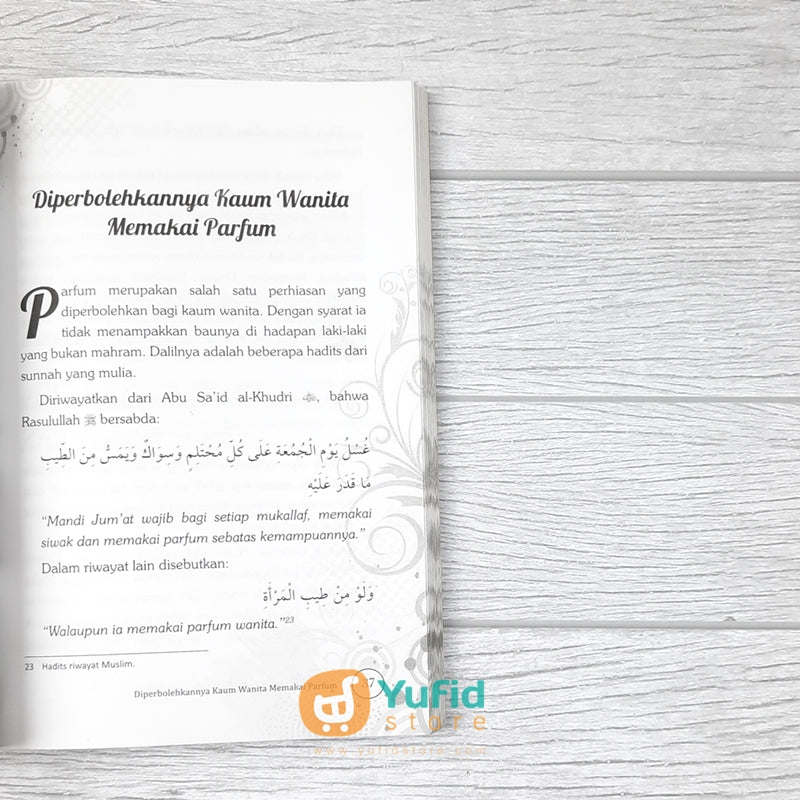 Diperbolehkannya Kaum Wanita
Memakai Parfum
Parfum merupakan salah satu perhiasan yang
diperbolehkan bagi kaum wanita. Dengan syarat ia
tidak menampakkan baunya di hadapan laki-laki
yang bukan mahram. Dalilnya adalah beberapa hadits dari
sunnah yang mulia.
Diriwayatkan dari Abu Sa'id al-Khudri, bahwa
Rasulullah ﷺ bersabda:
غُسْلُ يَوْمِ الْجُمُعَةِ عَلَى كُلِّ مُحْتَلِمٍ وَسِوَاكٌ وَيَمَسُّ مِنَ الطِّيبِ
مَا قَدَرَ عَلَيْهِ
"Mandi Jum'at wajib bagi setiap mukallaf, memakai
siwak dan memakai parfum sebatas kemampuannya."
Dalam riwayat lain disebutkan:
وَلَوْ مِنْ طِيبِ الْمَرْأَةِ
"Walaupun ia memakai parfum wanita."23
23 Hadits riwayat Muslim.
Diperbolehkannya Kaum Wanita Memakai Parfum
Yufid
store
www.yufidstore.com